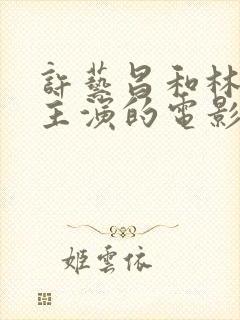 許藝昌和林
主演的電影
姬雲依